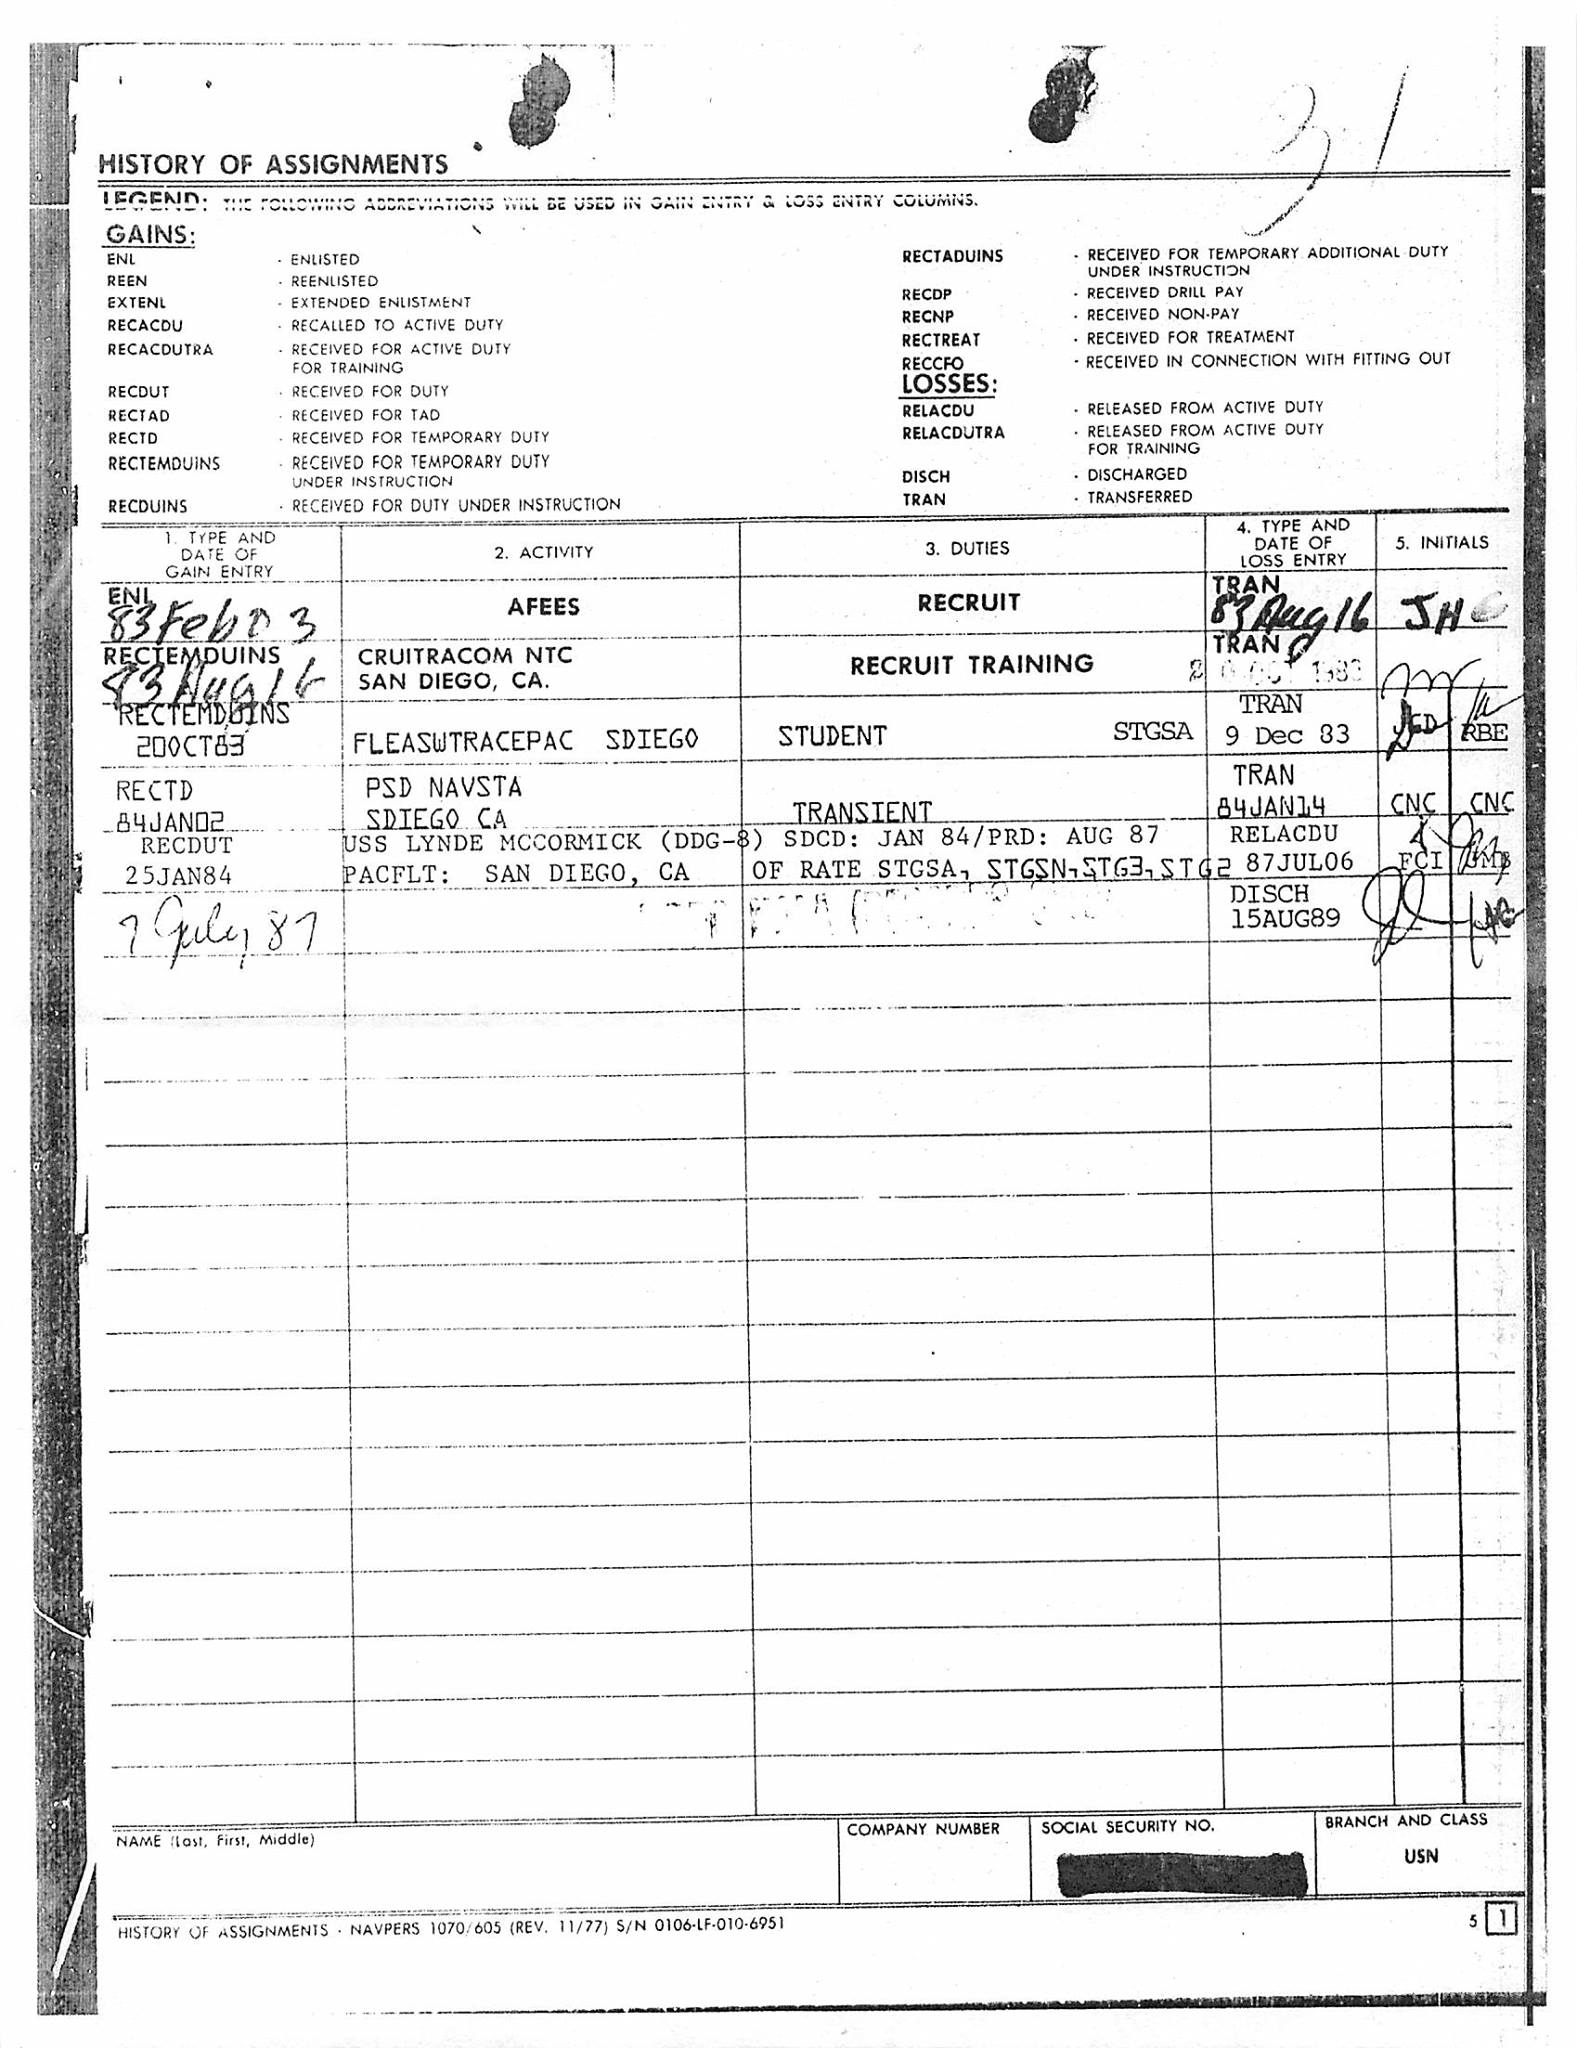 31
HISTORY OF ASSIGNMENTS
LEGEND: THE FOLLOWING ABBREVIATIONS WILL BE USED IN GAIN ENTRY & LOSS ENTRY COLUMNS.
GAINS:
ENL - ENLISTED
REEN - REENLISTED
EXTENL - EXTENDED ENLISTMENT
RECACDU - RECALLED TO ACTIVE DUTY
RECACDUTRA - RECEIVED FOR ACTIVE DUTY
FOR TRAINING
RECDUT - RECEIVED FOR DUTY
RECTAD - RECEIVED FOR TAD
RECTD - RECEIVED FOR TEMPORARY DUTY
RECTEMDUINS - RECEIVED FOR TEMPORARY DUTY
UNDER INSTRUCTION
RECDUINS - RECEIVED FOR DUTY UNDER INSTRUCTION
RECTADUINS - RECEIVED FOR TEMPORARY ADDITIONAL DUTY
UNDER INSTRUCTION
RECDP - RECEIVED DRILL PAY
RECNP - RECEIVED NON-PAY
RECTREAT - RECEIVED FOR TREATMENT
RECCFO - RECEIVED IN CONNECTION WITH FITTING OUT
LOSSES:
RELACDU - RELEASED FROM ACTIVE DUTY
RELACDUTRA - RELEASED FROM ACTIVE DUTY
FOR TRAINING
DISCH - DISCHARGED
TRAN - TRANSFERRED
1. TYPE AND
DATE OF
GAIN ENTRY
2. ACTIVITY
3. DUTIES
4. TYPE AND
DATE OF
LOSS ENTRY
5. INITIALS
ENL
83 Feb 03
AFEES
RECRUIT
TRAN
83 Aug 16
JH
RECTEMDUINS
83 Aug 16
CRUITRACOM NTC
SAN DIEGO, CA.
RECRUIT TRAINING
TRAN
20 OCT 1983
RECTEMDUINS
20OCT83
FLEASWTRACEPAC SDIEGO
STUDENT STGSA
TRAN
9 Dec 83
RBE
RECTD
84JAN02
PSD NAVSTA
SDIEGO CA
TRANSIENT
TRAN
84JAN14
CNC CNC
RECDUT
25JAN84
USS LYNDE MCCORMICK (DDG-8) SDCD: JAN 84/PRD: AUG 87
PACFLT: SAN DIEGO, CA OF RATE STGSA, STGSN, STG3, STG2
RELACDU
87JUL06
FCI
7 July 87
DISCH
15AUG89
NAME (Last, First, Middle)
COMPANY NUMBER
SOCIAL SECURITY NO.
BRANCH AND CLASS
USN
HISTORY OF ASSIGNMENTS - NAVPERS 1070/605 (REV. 11/77) S/N 0106-LF-010-6951
5 1